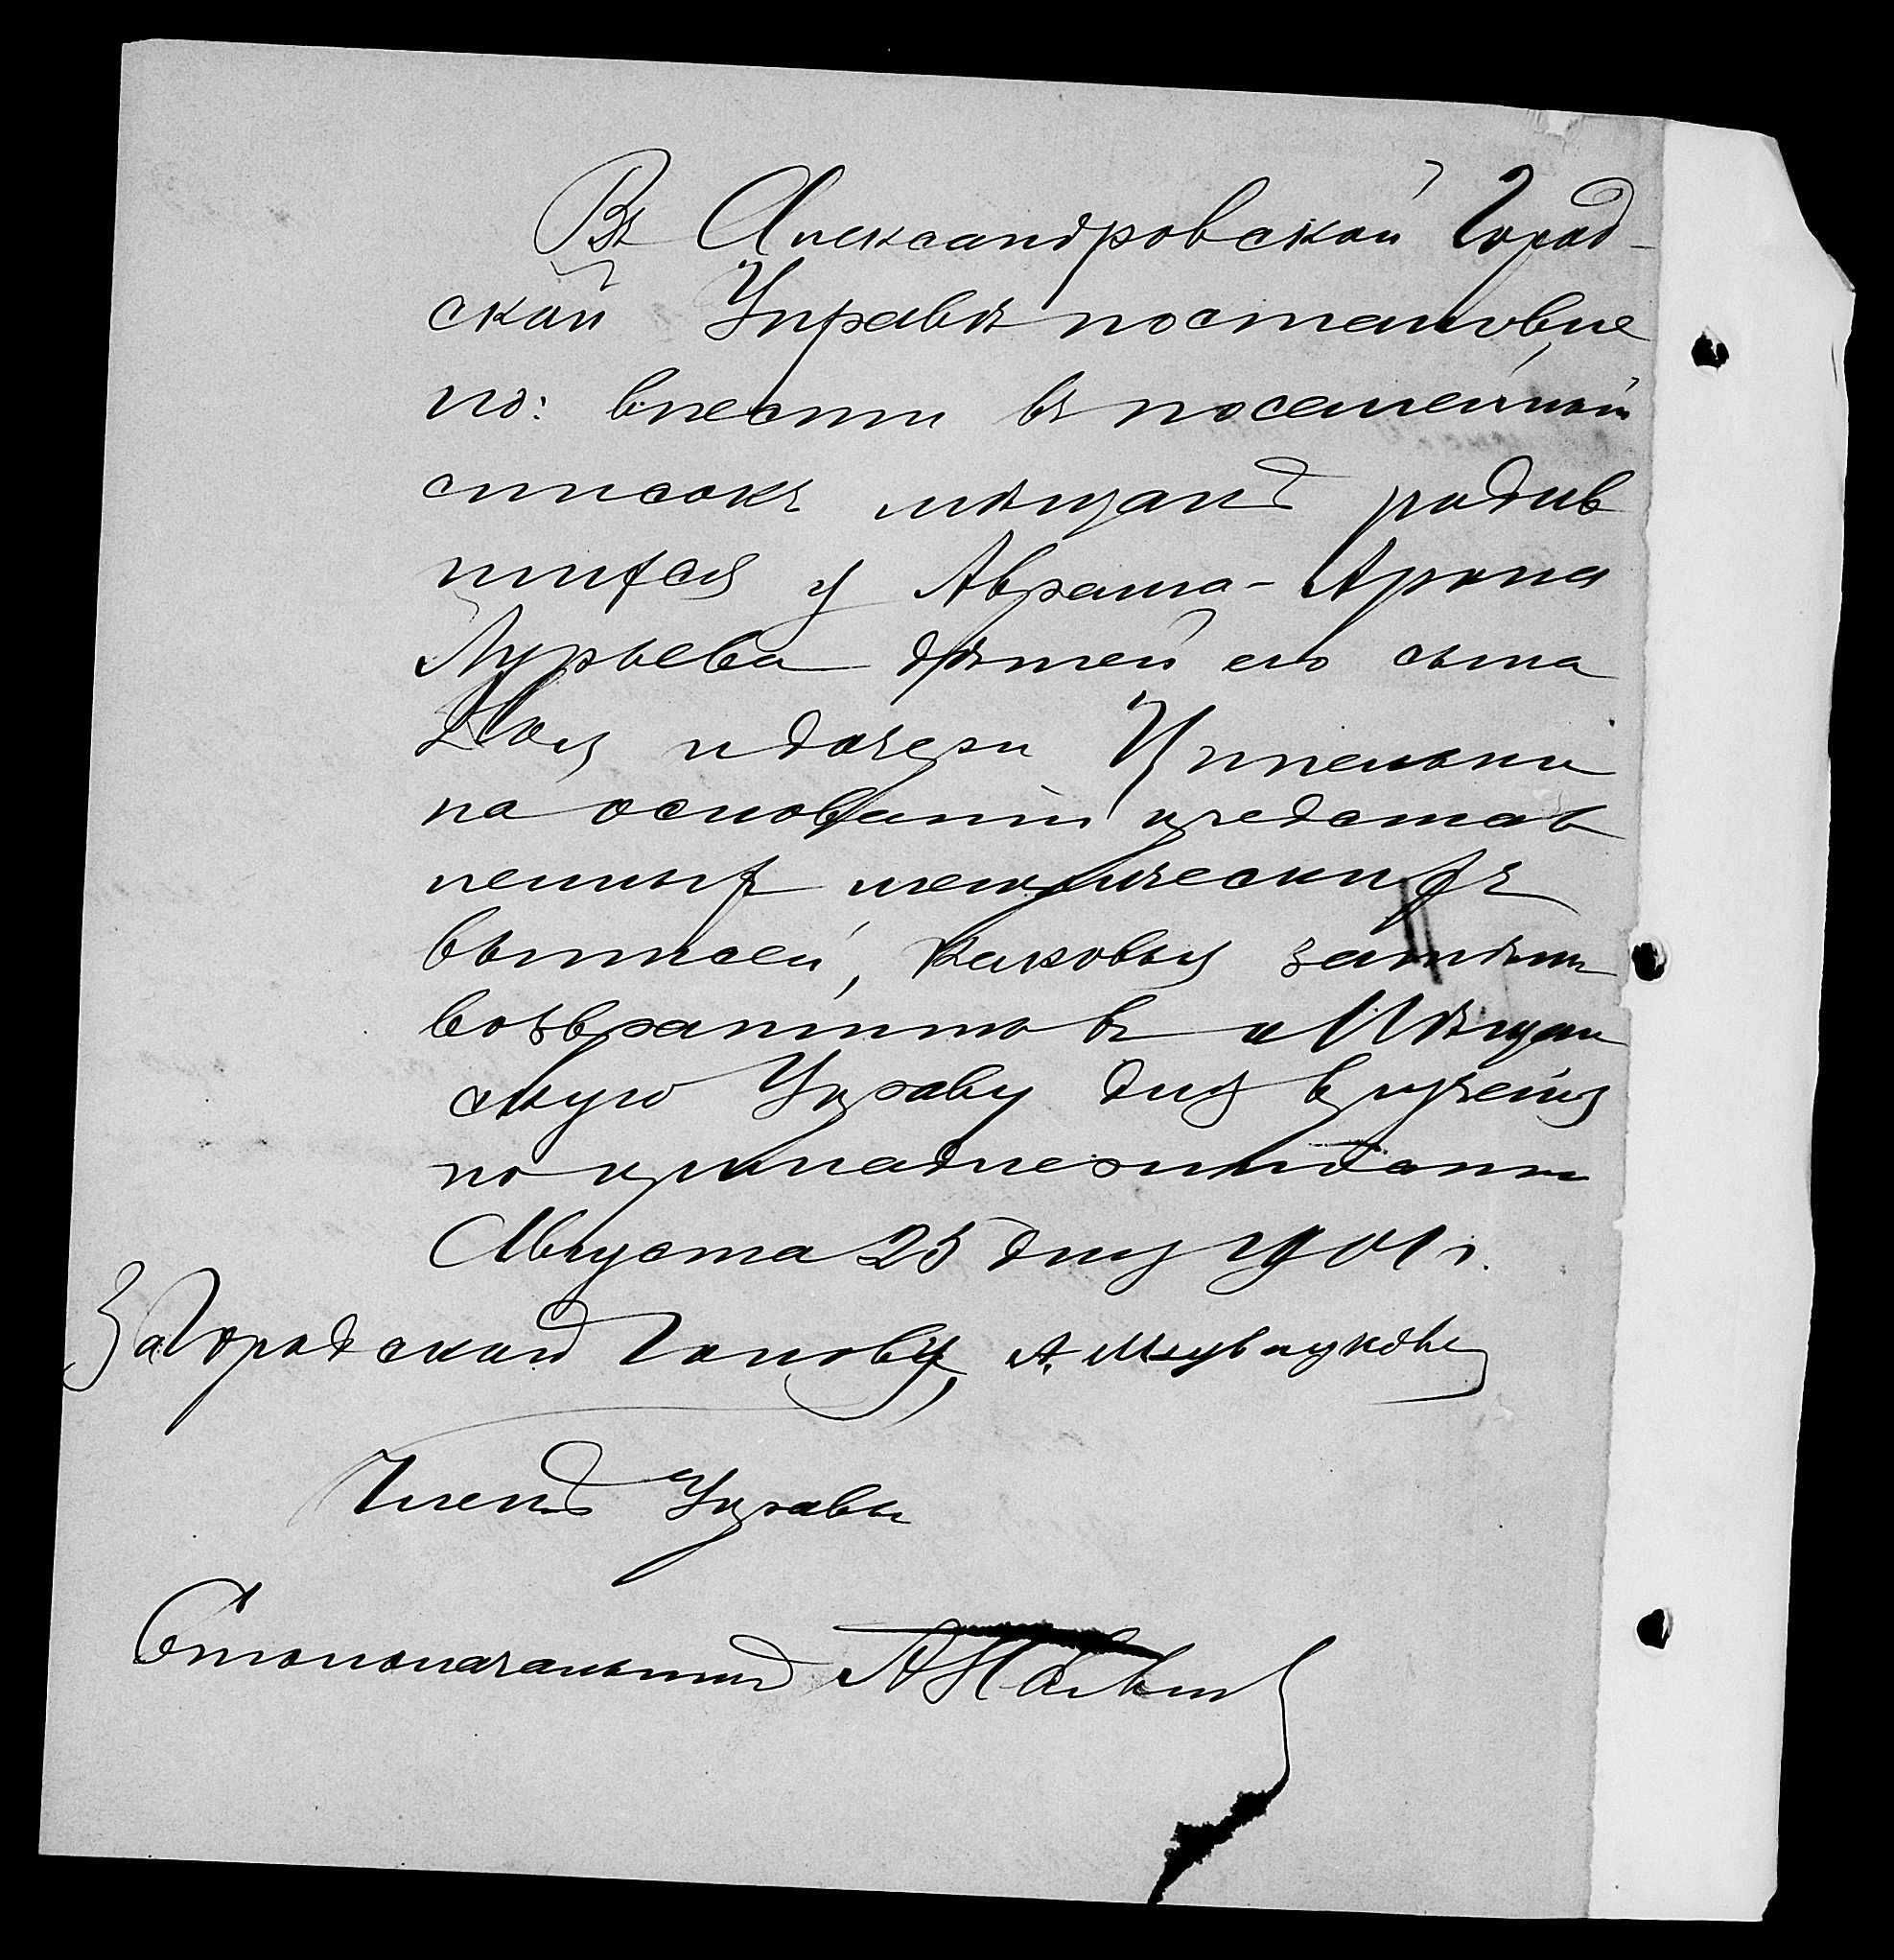 Въ Александровской Город-
ской Управѣ постановле
но: внести въ посемейный
списокъ мѣщанъ родив
шихся у Абрама-Арона
Лурьева дѣтей его сына
Ноя и дочери Ципельки
на основаніи представ
ленныхъ метрическихъ
выписей, каковыя затѣмъ
возвратить въ Мѣщан
скую Управу для врученія
по принадлежности
Августа 25 дня 1901 г.
За Городской Голову, А.
Членъ Управы
Столоначальникъ